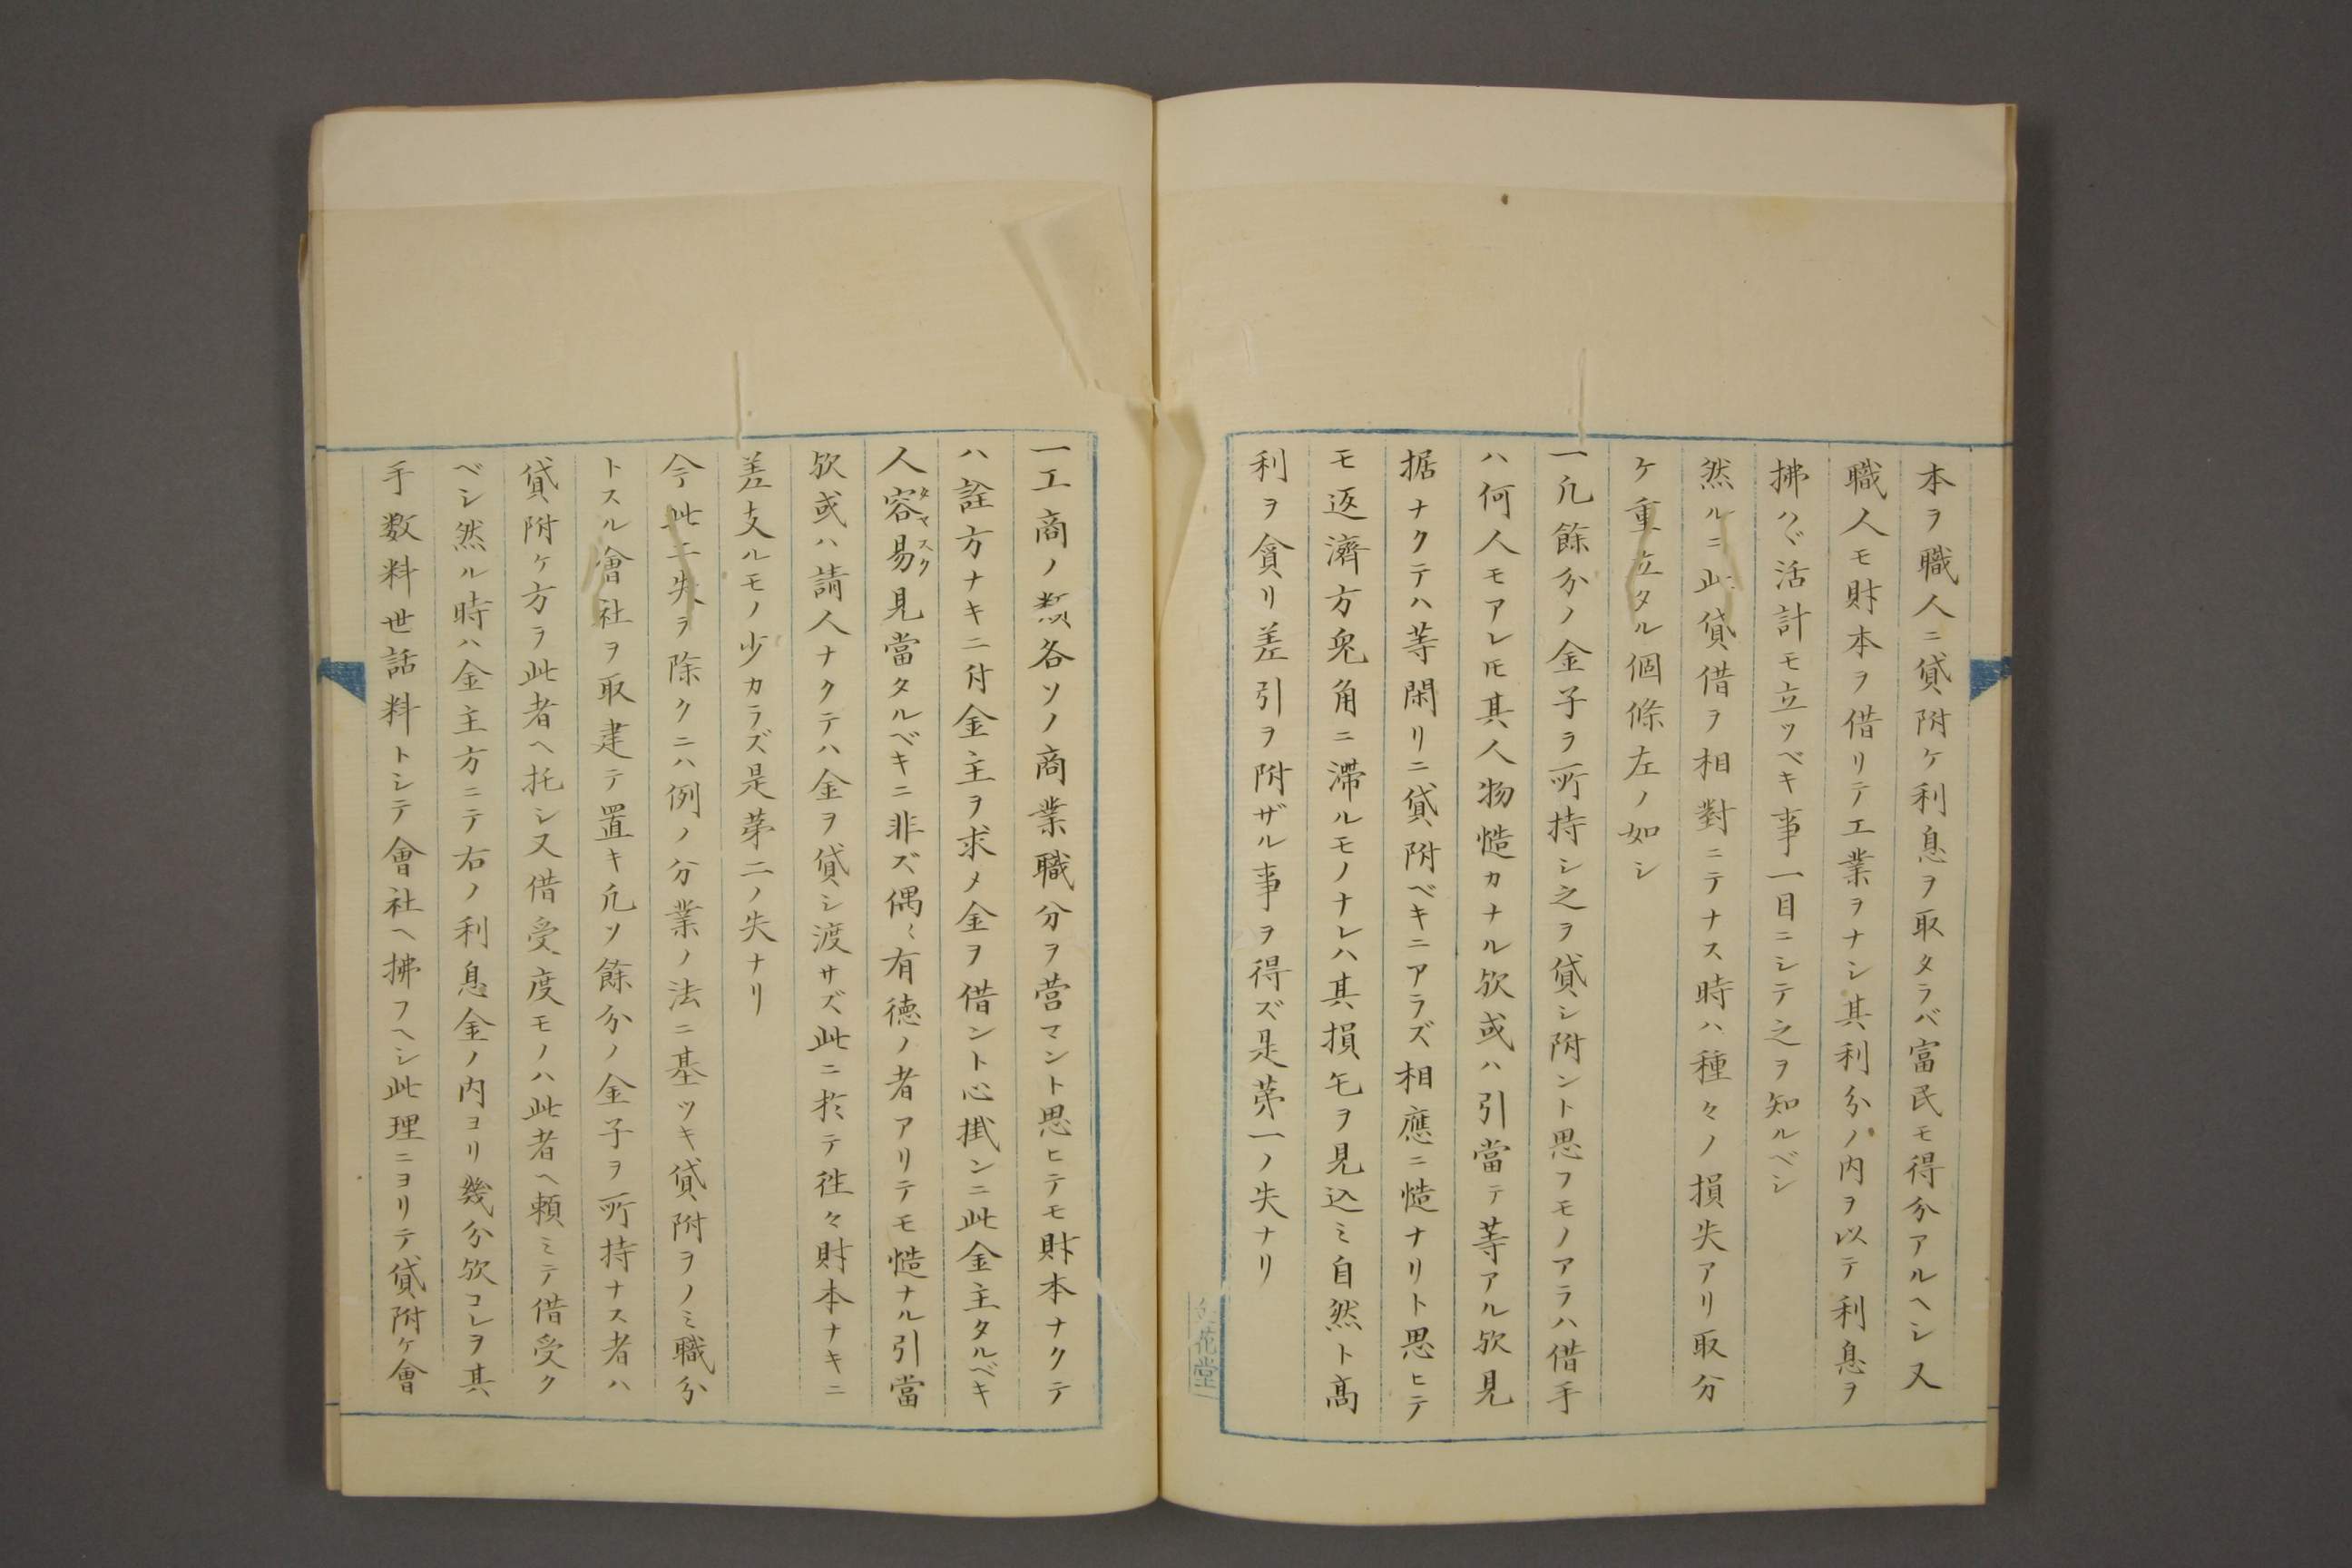 本ヲ職人ニ貸附ケ利息ヲ取タラバ富民モ得分アルヘシ又
職人モ財本ヲ借リテ工業ヲナシ其利分ノ内ヲ以テ利息ヲ
拂ハヾ活計モ立ツベキ事一目ニシテ之ヲ知ルベシ
然ルニ此貸借ヲ相對ニテナス時ハ種々ノ損失アリ取分
ケ重立タル個條左ノ如シ
一凡餘分ノ金子ヲ所持シ之ヲ貸シ附ント思フモノアラハ借手
ハ何人モアレ𪜈其人物慥カナル欤或ハ引當テ等アル欤見
据ナクテハ等閑リニ貸附ベキニアラズ相應ニ慥ナリト思ヒテ
モ返濟方兎角ニ滯ルモノナレハ其損乇ヲ見込ミ自然ト髙
利ヲ貪リ差引ヲ附ザル事ヲ得ズ是苐一ノ失ナリ
一工商ノ類各ソノ商業職分ヲ営マント思ヒテモ財本ナクテ
ハ詮方ナキニ付金主ヲ求メ金ヲ借ント心掛ンニ此金主タルベキ
人容易タヤスク見當タルベキニ非ズ偶〻有徳ノ者アリテモ慥ナル引當
欤或ハ請人ナクテハ金ヲ貸シ渡サズ此ニ於テ徃々財本ナキニ
差支ルモノ少カラズ是苐二ノ失ナリ
今此二失ヲ除クニハ例ノ分業ノ法ニ基ツキ貸附ヲノミ職分
トスル會社ヲ取建テ置キ凡ソ餘分ノ金子ヲ所持ナス者ハ
貸附ケ方ヲ此者ヘ托シ又借受度モノハ此者ヘ頼ミテ借受ク
ベシ然ル時ハ金主方ニテ右ノ利息金ノ内ヨリ幾分欤コレヲ其
手数料世話料トシテ會社ヘ拂フヘシ此理ニヨリテ貸附ケ會
花堂